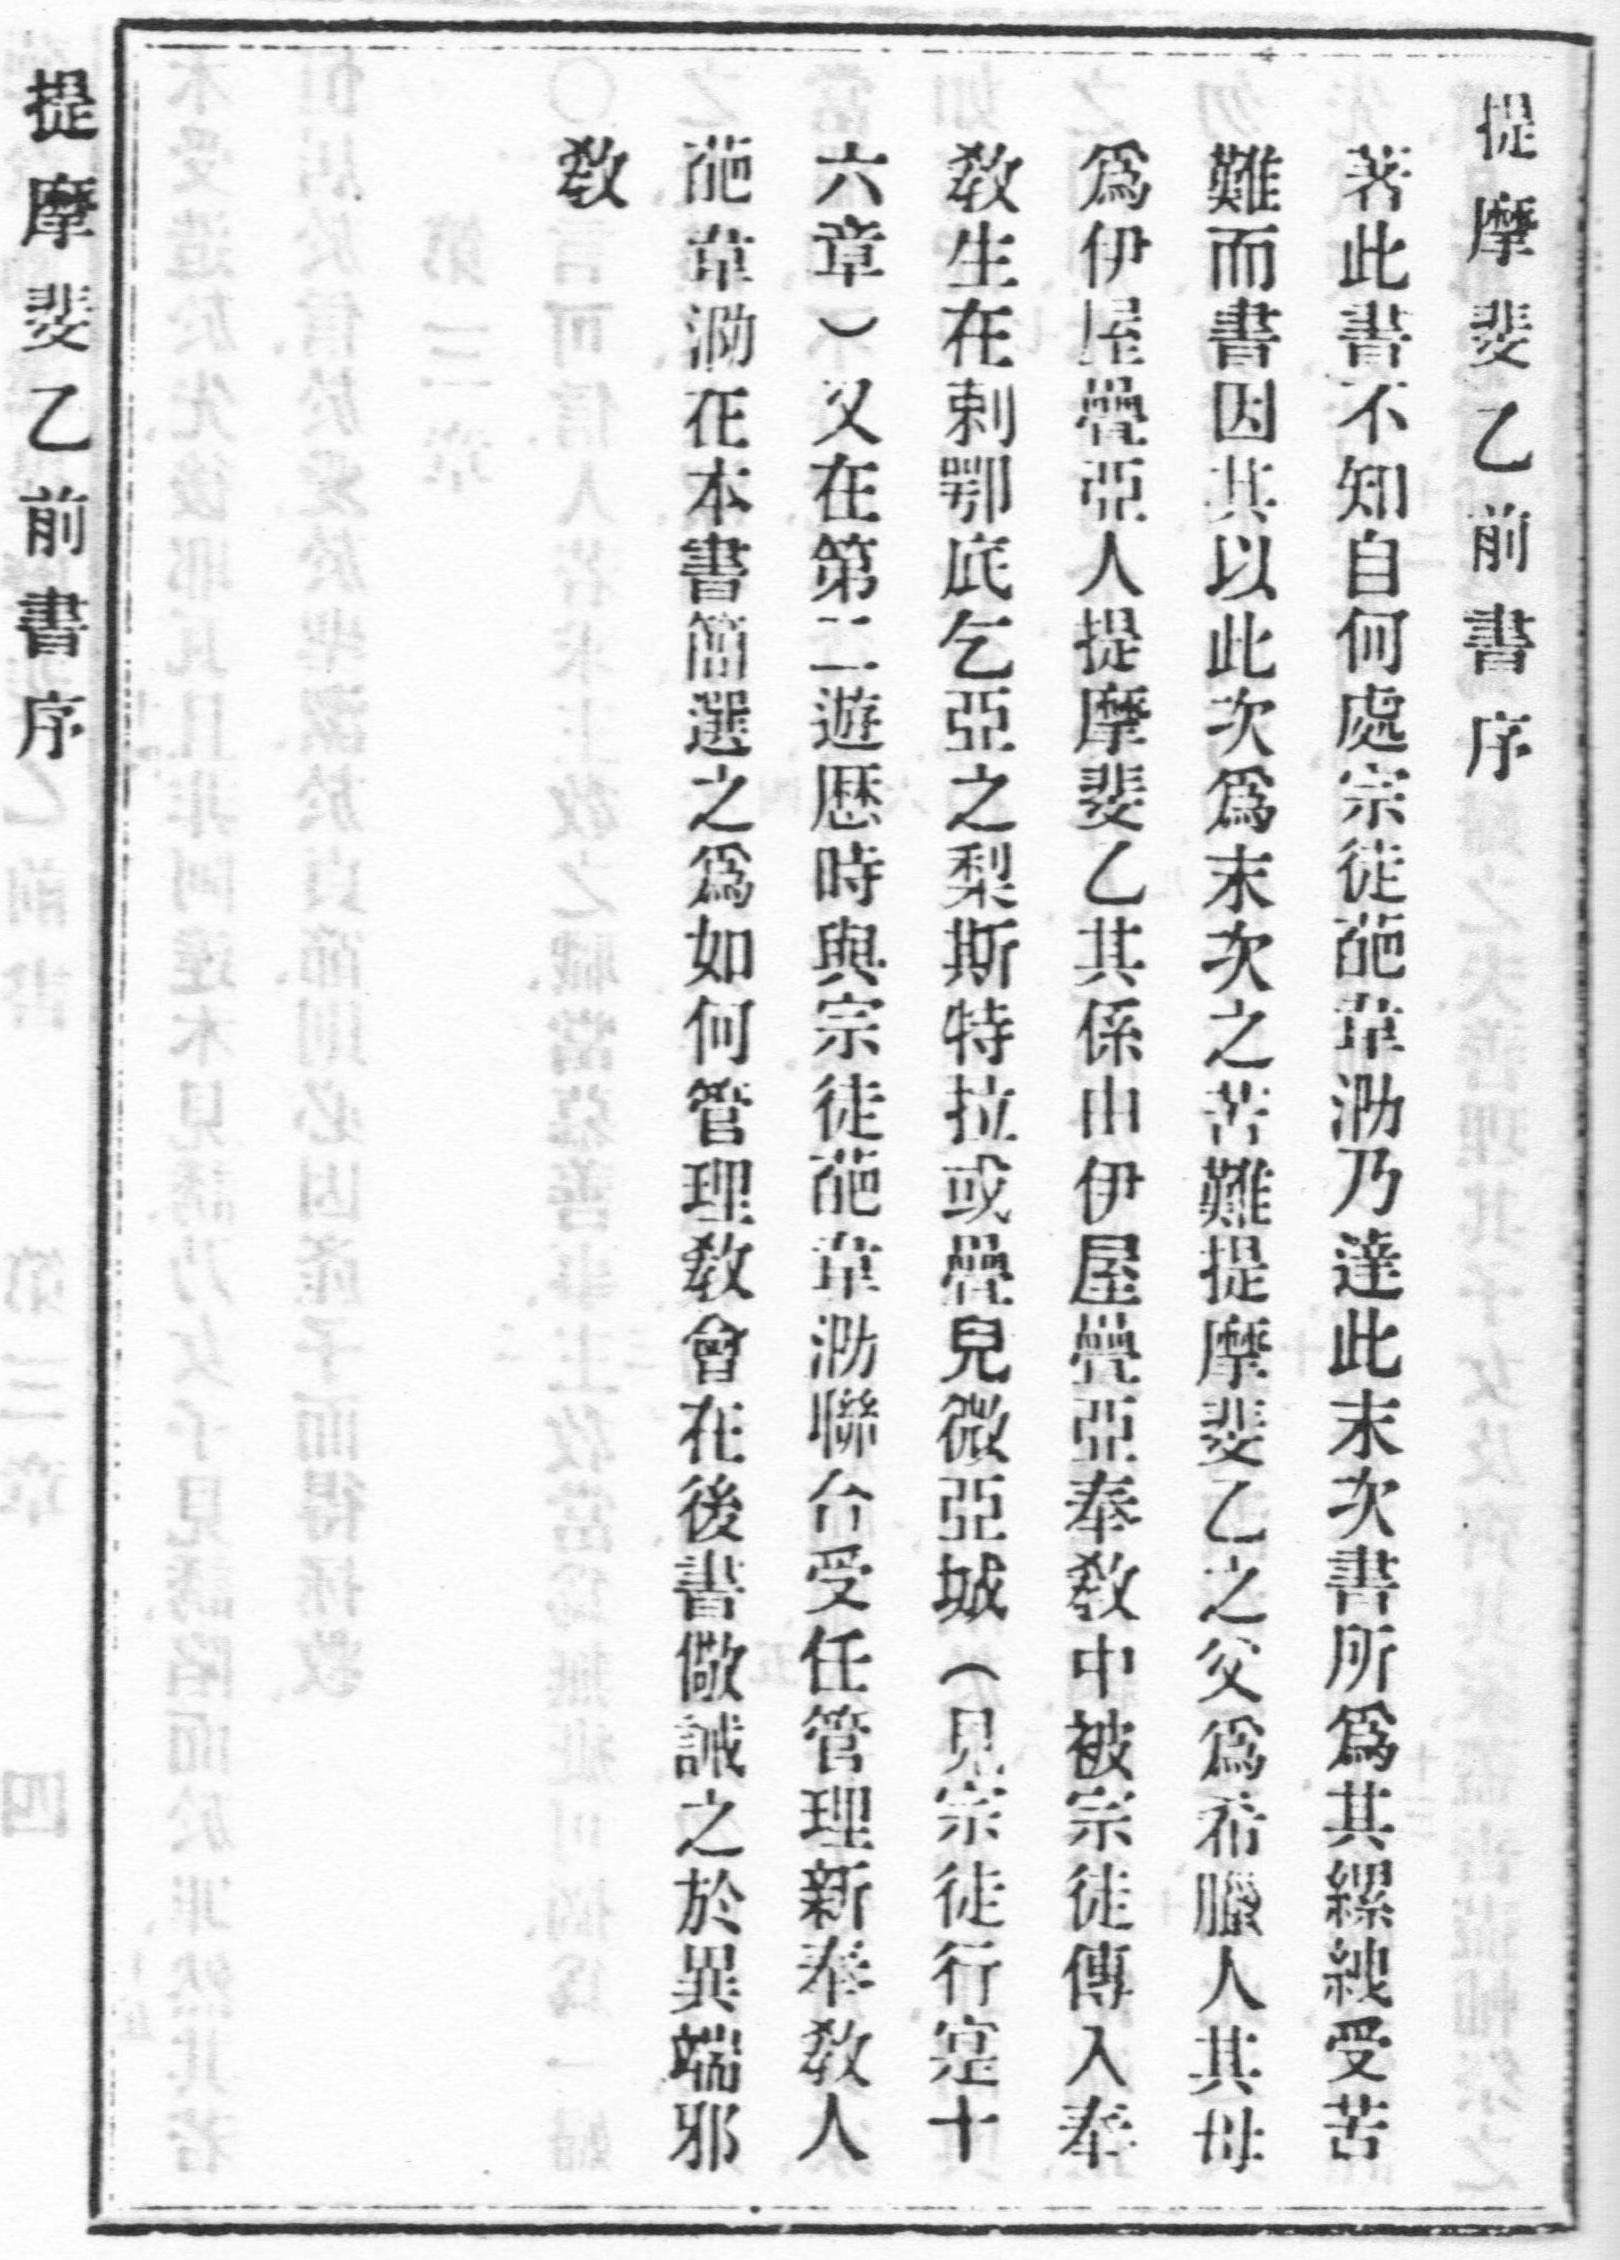 提摩斐乙前書序
著此書不知自何處宗徒葩韋泐乃達此末次書所爲其縲絏受苦
難而書因其以此次爲末次之苦難提摩斐乙之父爲希臘人其母
爲伊屋疊亞人提摩斐乙其係由伊屋疊亞奉教中被宗徒傳入奉
教生在剌鄂底乞亞之梨斯特拉或疊兒微亞城（見宗徒行寔十
六章）又在第二遊歷時與宗徒葩韋泐聯合受任管理新奉教人
葩韋泐在本書簡選之爲如何管理教會在後書儆誡之於異端邪
教
提摩斐乙前書序